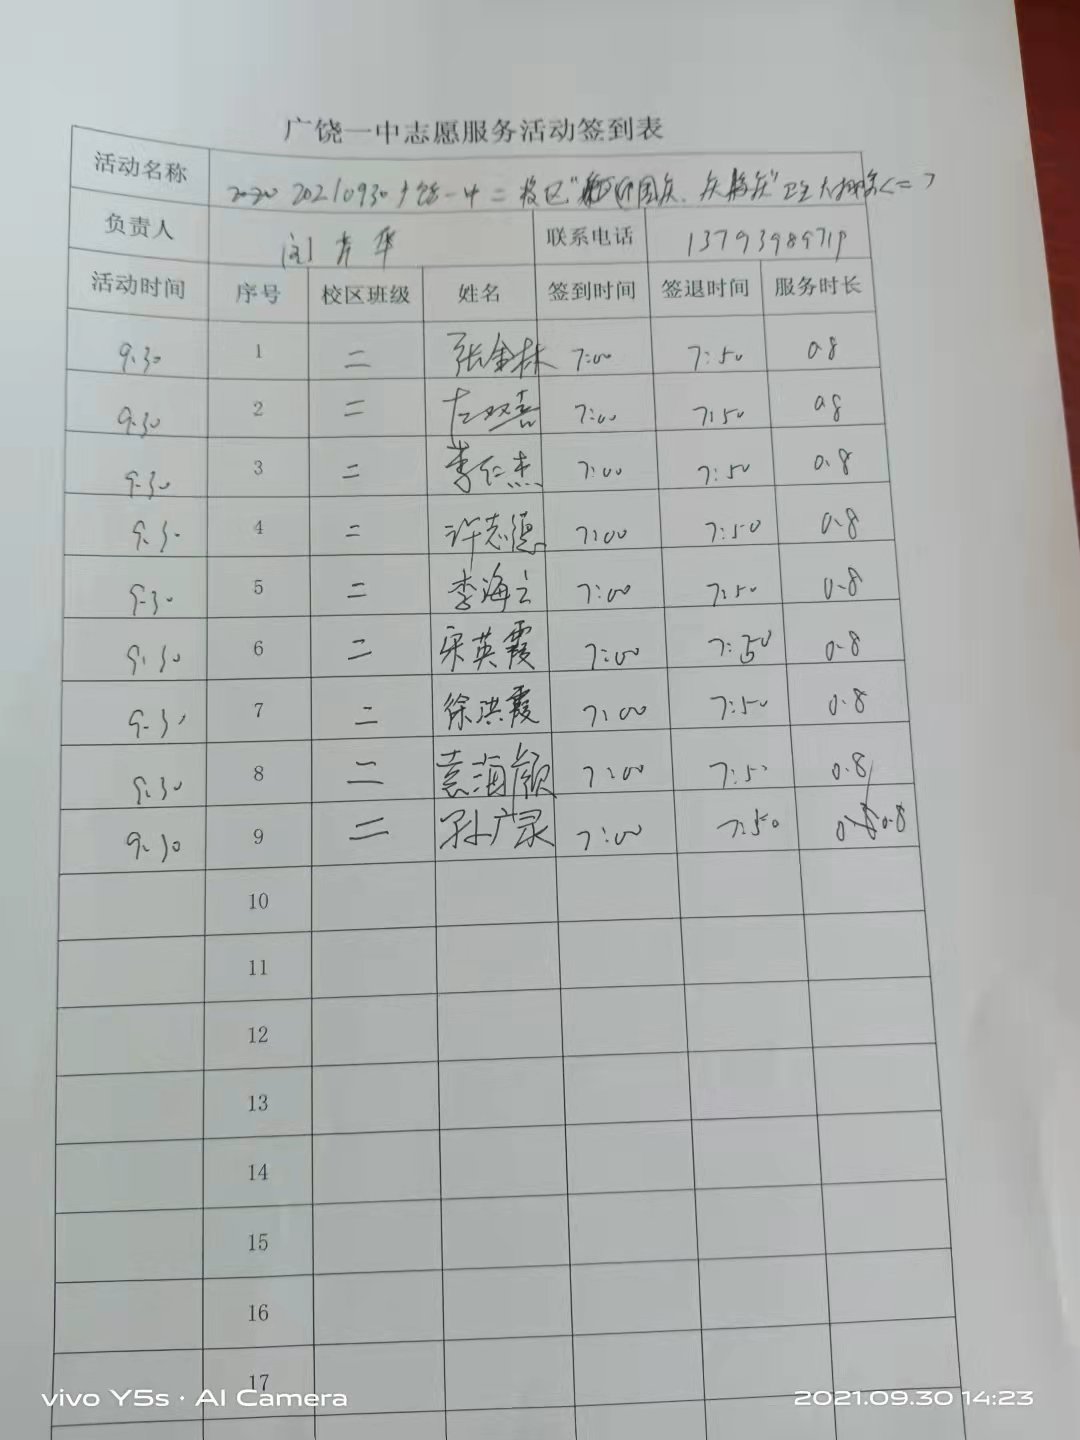 广饶一中志愿服务活动签到表
活动名称 20210930广饶一中二校区"迎国庆、庆 庆"卫生大扫除<二>
负责人 闫吉华 联系电话 13793989719
活动时间 序号 校区班级 姓名 签到时间 签退时间 服务时长
9.30 1 二 张金林 7:00 7:50 0.8
9.30 2 二 左双喜 7:00 7:50 0.8
9.30 3 二 李仁杰 7:00 7:50 0.8
9.30 4 二 许志德 7:00 7:50 0.8
9.30 5 二 李海云 7:00 7:50 0.8
9.30 6 二 宋英霞 7:00 7:50 0.8
9.30 7 二 徐洪霞 7:00 7:50 0.8
9.30 8 二 袁海颜 7:00 7:50 0.8
9.30 9 二 孙广录 7:00 7:50 0.8
10
11
12
13
14
15
16
17
vivo Y5s · AI Camera 2021.09.30 14:23